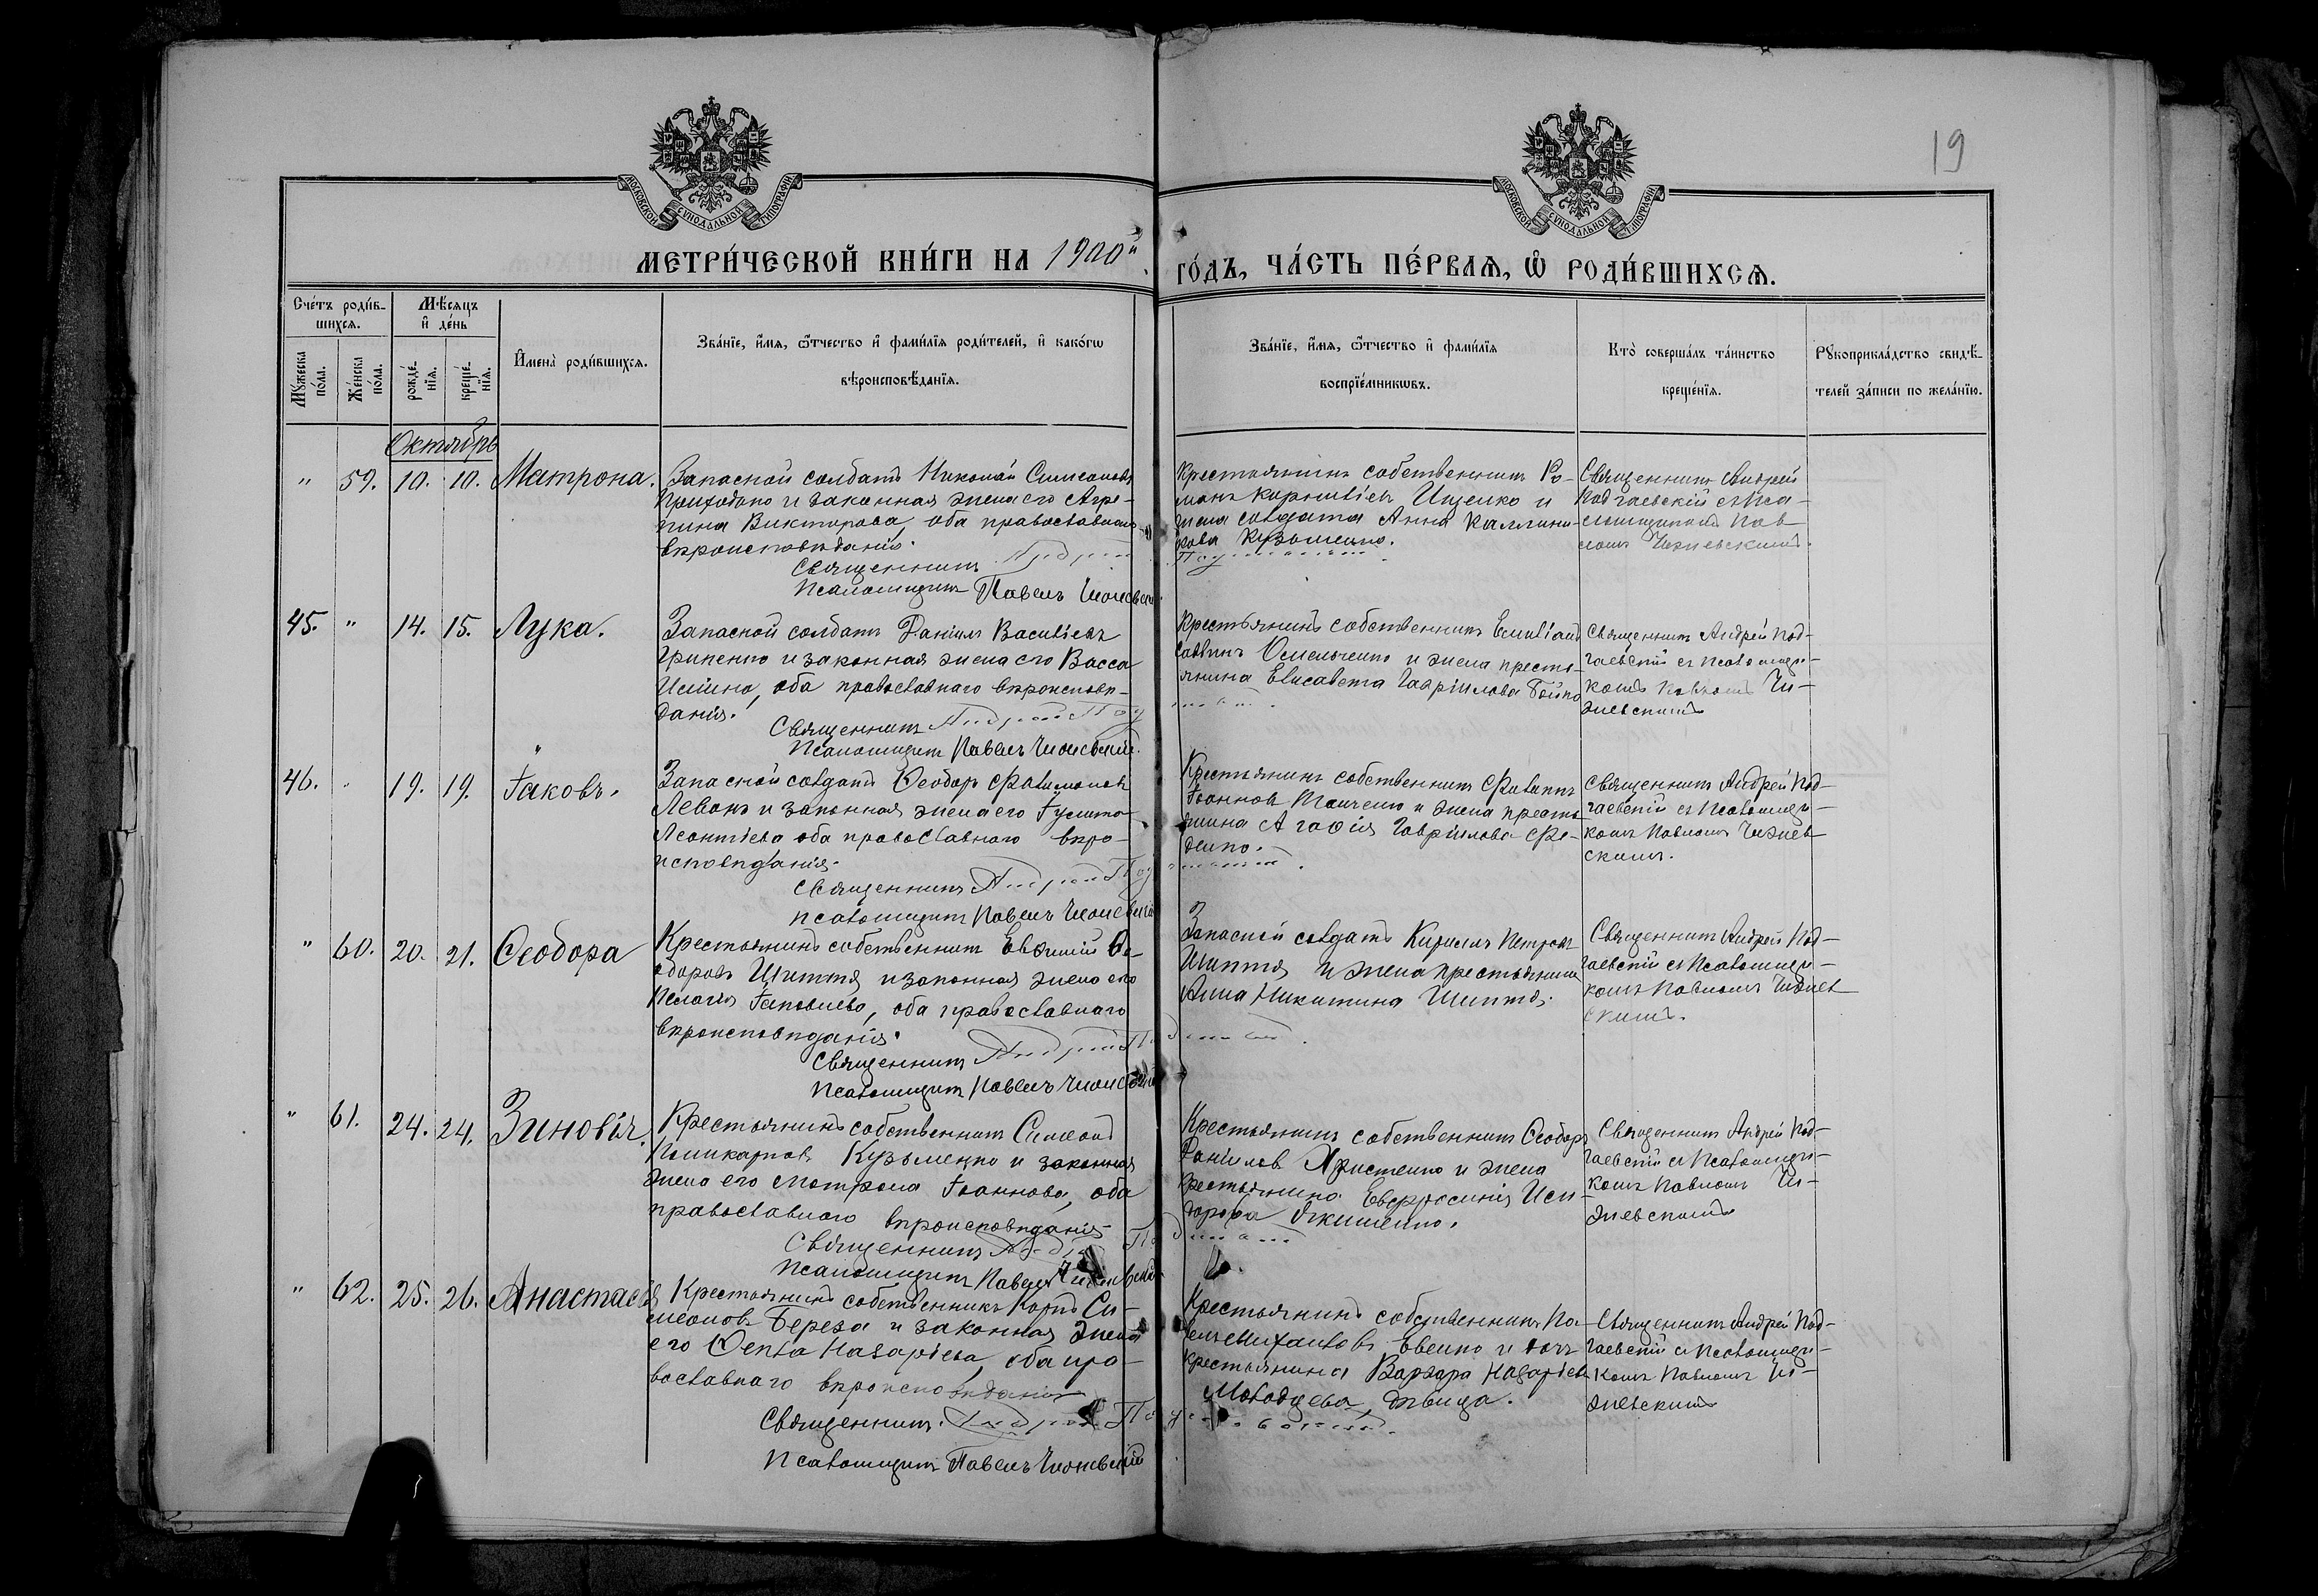 19
МОСКОВСКОЙ СѴНОДАЛЬНОЙ ТИПОГРАФІИ
МОСКОВСКОЙ СѴНОДАЛЬНОЙ ТИПОГРАФІИ
МЕТРИ́ЧЕСКОЙ КНИ́ГИ НА 1900й
ГО́ДЪ, ЧА́СТЬ ПЕ́РВАЯ, Ѡ РОДИ́ВШИХСЯ.
Сче́тъ роди́в-
шихся.
Мѣ́сяцъ
и де́нь
Мꙋжеска по́ла.
Же́нска по́ла.
рожде́-
нїя.
креще́-
нїя.
Имена̀ роди́вшихся.
Зва́нїе, и́мя, ѻ҆́тчество и фами́лїя роди́телей, и како́гѡ
вѣроисповѣ́данїя.
Зва́нїе, и́мя, ѻ҆́тчество и фами́лїя
воспрїе́мникѡвъ.
Кто̀ соверша́лъ та́инство
креще́нїя.
Рꙋкоприкла́дство свидѣ́-
телей за́писи по жела́нїю.
Октябрь
" 59. 10. 10. Матрона.
Запасной солдатъ Николай Симеоновъ
Приходько и законная жена его Агре-
пина Викторова, оба православнаго
вѣроисповѣданія.
Священникъ Андрей
Псаломщикъ Павелъ
Крестьянинъ собственникъ Ро-
манъ Корниліевъ Ищенко и
жена солдата Анна Каллини-
кова Кузьменко.
Священникъ Андрей
Подгаевскій съ Пса-
ломщикомъ Пав-
ломъ Чижевскимъ.
45. " 14. 15. Лука.
Запасной солдатъ Даніилъ Василіевъ
Гриненко и законная жена его Васса
оба православнаго вѣроисповѣ-
данія.
Священникъ Андрей Под
Псаломщикъ Павелъ Чижевскій.
Крестьянинъ собственникъ Емиліанъ
Саввинъ Омельченко и жена кресть-
янина Елисавета Гавріилова Бойко
Священникъ Андрей Под-
гаевскій съ Псаломщи-
комъ Павломъ Чи-
жевскимъ
46. " 19. 19. Іаковъ.
Запасной солдатъ Ѳеодоръ Филимоновъ
и законная жена его Іулитта
Леонтіева оба православнаго вѣро-
исповѣданія.
Священникъ Андрей Под
Псаломщикъ Павелъ Чижевскій
Крестьянинъ собственникъ Филиппъ
Іоанновъ Ткаченко и жена кресть-
янина Агафія Гавріилова Фе-
денко.
Священникъ Андрей Под-
гаевскій съ Псаломщи-
комъ Павломъ Чижев-
скимъ.
" 60. 20. 21. Ѳеодора
Крестьянинъ собственникъ Евфимій Ѳе-
одоровъ и законная жена его
Пелагія Іаковлева, оба православнаго
вѣроисповѣданія.
Священникъ Андрей
Псаломщикъ Павелъ Чижевскій
Запасной солдатъ Кириллъ Петровъ
и жена крестьянина
Анна Никитина
Священникъ Андрей Под-
гаевскій съ Псаломщи-
комъ Павломъ Чижев-
скимъ.
" 61. 24. 24. Зиновія.
Крестьянинъ собственникъ Симеонъ
Поликарповъ Кузьменко и законная
жена его Матрона Іоаннова, оба
православнаго вѣроисповѣданія
Священникъ
Псаломщикъ Павелъ Чижевскій
Крестьянинъ собственникъ Ѳеодоръ
Даніиловъ Христенко и жена
крестьянина Евфросинія Иси-
дорова Якименко.
Священникъ Андрей Под-
гаевскій съ Псаломщи-
комъ Павломъ Чи-
жевскимъ
" 62. 25. 26. Анастасія
Крестьянинъ собственникъ Карпъ Си-
меоновъ Береза и законная жена
его Ѳекла Назаріева, оба пра-
вославнаго вѣроисповѣданія
Священникъ Андрей
Псаломщикъ Павелъ Чижевскій
Крестьянинъ собственникъ Па-
велъ Михаиловъ и дочь
крестьянина Варвара Назаріева
дѣвица.
Священникъ Андрей Под-
гаевскій съ Псаломщи-
комъ Павломъ Чи-
жевскимъ